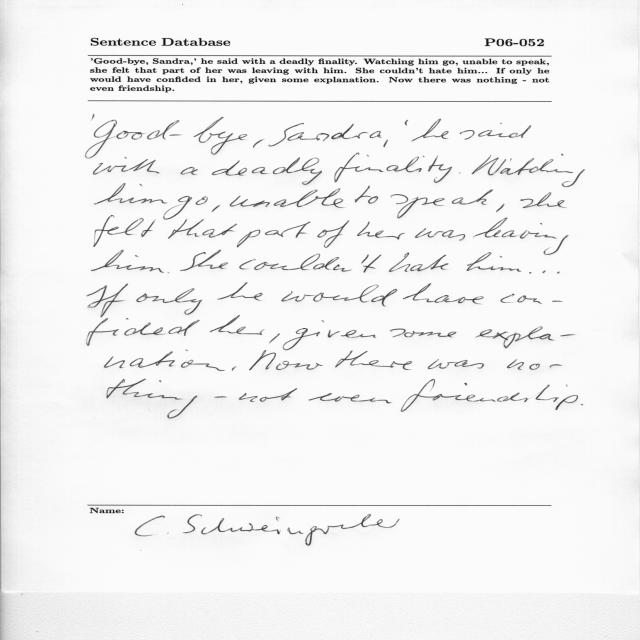 Sentence Database P06-052
'Good-bye, Sandra,' he said with a deadly finality. Watching him go, unable to speak,
she felt that part of her was leaving with him. She couldn't hate him... If only he
would have confided in her, given some explanation. Now there was nothing - not
even friendship.
'Good-bye, Sandra,' he said
with a deadly finality. Watching
him go, unable to speak, she
felt that part of her was leaving
him. She couldn't hate him...
If only he would have con-
fided her, given some expla-
nation. Now there was no-
thing - not even friendship.
Name:
C.